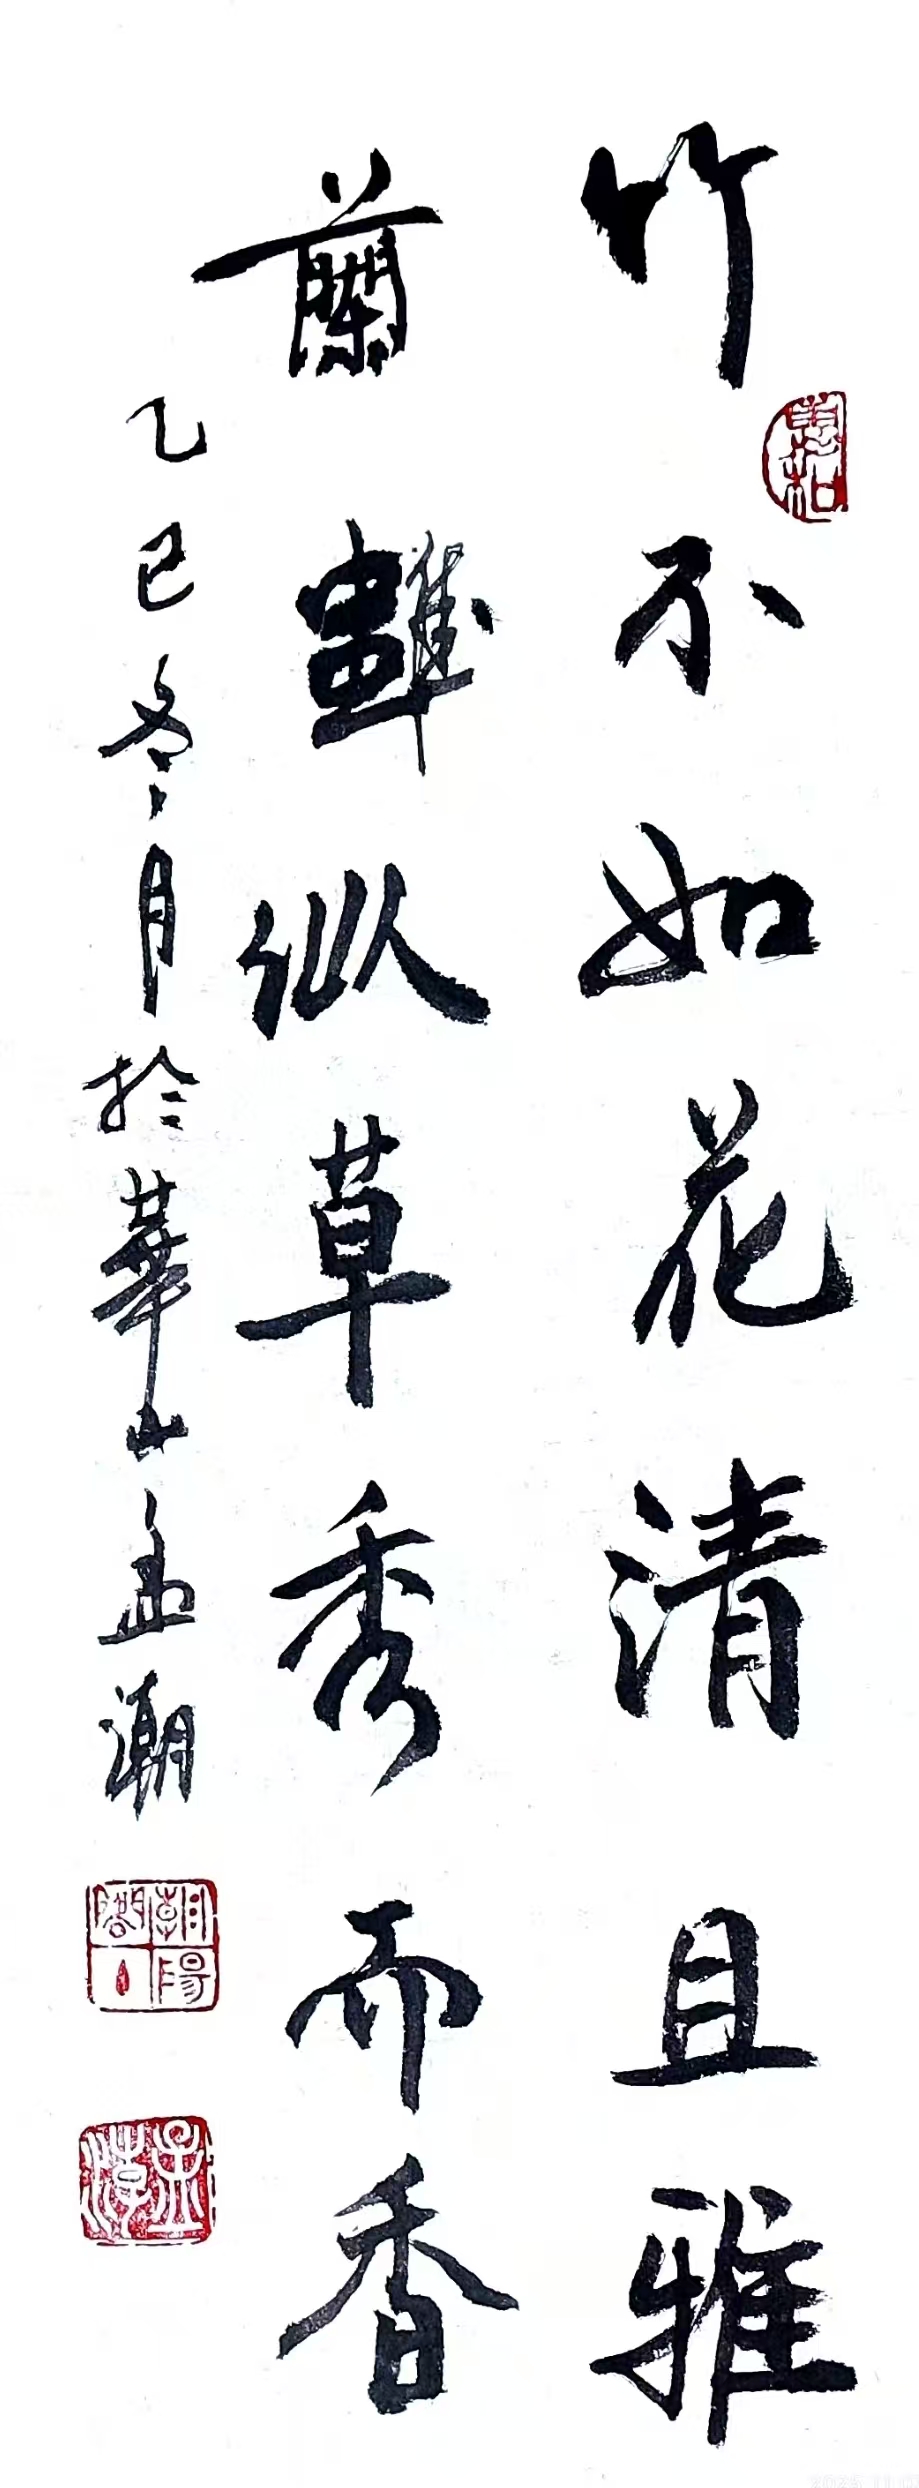 竹不如花清且雅
蘭雖似草秀而香
乙巳冬月於華山孟潮
朝陽閣
孟潮